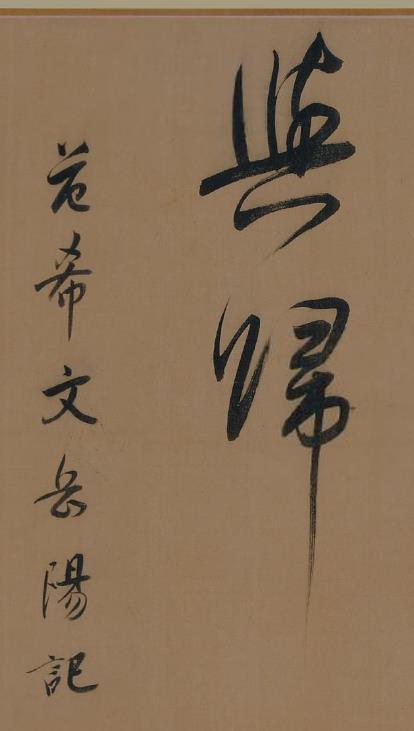 與歸
范希文岳陽記